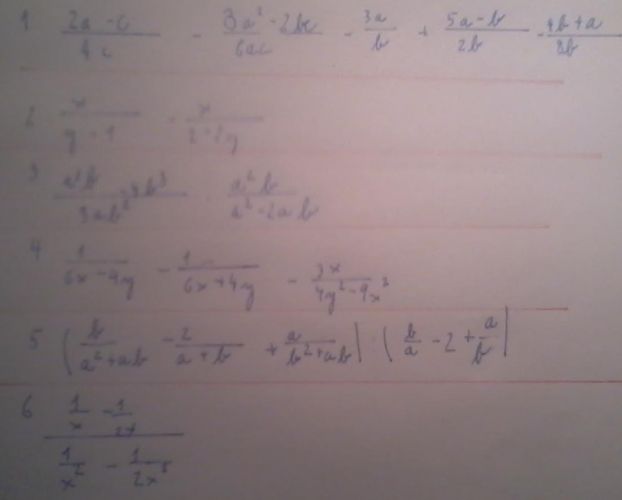 1 (2a - c)/(4c) - (3a² - 2bc)/(6ac) - 3a/b + (5a - b)/(2b) - (4b + a)/(8b)
2 x/(y - 1) - x/(2 - 2y)
3 (a²b - 4b³)/(3ab²) · a²b/(a² - 2ab)
4 1/(6x - 4y) - 1/(6x + 4y) - 3x/(4y² - 9x²)
5 (b/(a² + ab) - 2/(a + b) + a/(b² + ab)) · (b/a - 2 + a/b)
6 (1/x - 1/2x)/(1/x² - 1/2x²)